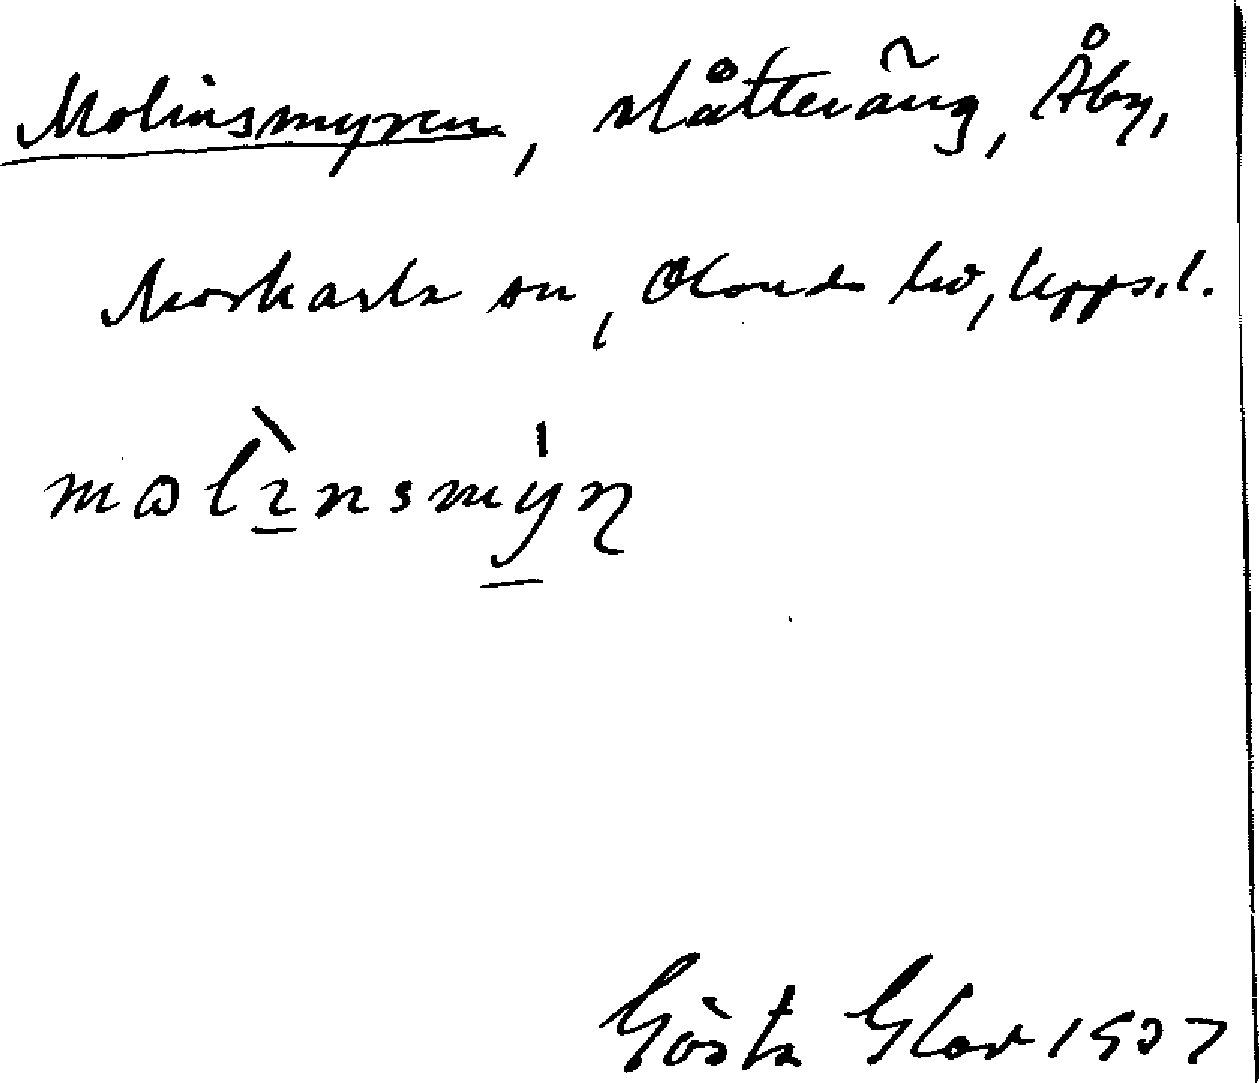 Molinsmyren, slåtteräng, Åby,
Morkarla sn, Olands hd, Upps.l.
Gösta Elov 1937